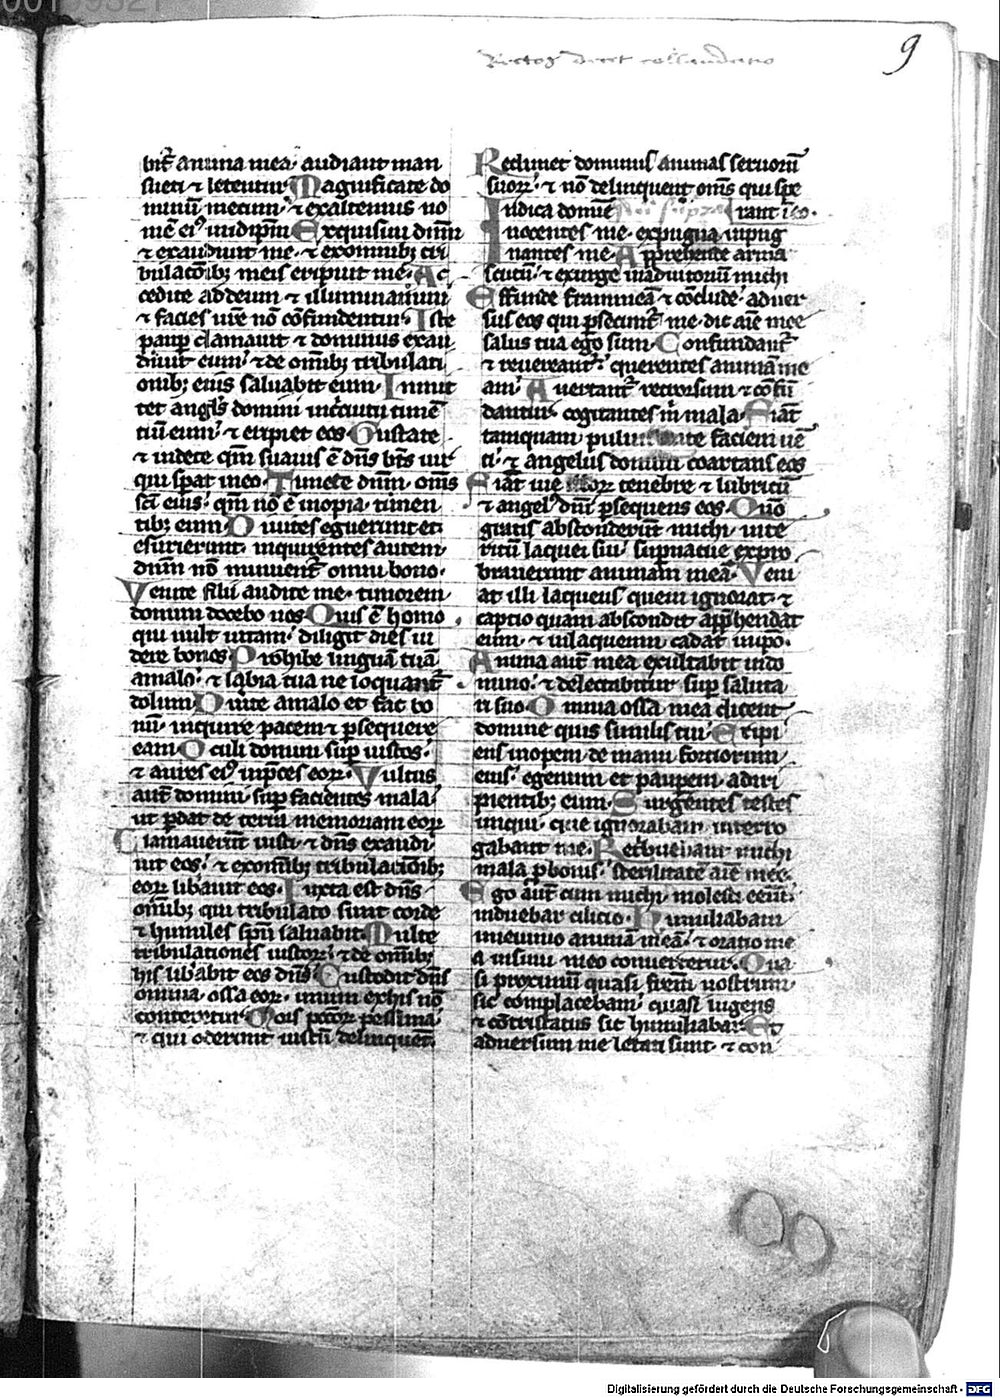 Rectos decet collaudatio
9
bit᷑ anima mea· audiant man
sueti ⁊ letentur Magnificate do
minū mecum· ⁊ exaltemus no
mē eiꝰ inidip̄m Exquisiui dn̄m
⁊ exaudiuit me· ⁊ exomnibꝫ tri
bulatōibꝫ meis eripuit me· Ac
cedite addeum ⁊ illuminamini
⁊ facies ur̄e nō cōfundentur· Iste
paup̲ clamauit ⁊ dominus exau
diuit eum· ⁊ de om̄ibꝫ tribulati
onibꝫ eius saluabit eum· Inmit
tet angl̄s domini incircuitu timē
tiū eum· ⁊ eripiet eos Gustate
⁊ uidete qm̄ suauis ē dn̄s bt̄s uir
qui sp̲at ineo· Timete dn̄m· om̄s
sc̄i eius· qm̄ nō ē inopia timen
tibꝫ eum Diuites eguerunt et
esurierunt· inquirentes autem
dn̄m nō minuent᷑ omni bono·
Venite filii audite me· timorem
domini docebo uos Quis ē homo
qui uult uitam· diligit dies ui
dere bonos Prohibe linguā tuā
amalo· ⁊ labia tua ne loquant᷑
dolum· Diuerte amalo et fac bo
nū· inquire pacem ⁊ p̲sequere
eam Oculi domini sup̲ iustos·
⁊ aures eiꝰ inp̄ces eoꝝ· Vultus
aut̄ domini sup̲ facientes mala·
ut p̲dat de terra memoriam eoꝝ
Clamauerūt iusti· ⁊ dn̄s exaudi
uit eos· ⁊ exom̄ibꝫ tribulacionibꝫ
eoꝝ libauit eos· Iuxta est dn̄s
om̄ibꝫ qui tribulato sunt corde
⁊ humiles sp̄u saluabit· Multe
tribulationes iustoꝝ· ⁊ de om̄ibꝫ
his lib̲abit eos dn̄s Custodit dn̄s
omnia· ossa eoꝝ· unum exhis nō
conteretur· Mors pctōꝝ pessima·
⁊ qui oderunt iustū delinquēt·
Redimet dominus animas seruorū
suoꝝ· ⁊ nō delinquent om̄s qui spe
Iudica domīe rant īeo·
nocentes me· expugna inpug
nantes me· Apprehende arma
scutū· ⁊ exurge inadiutoriū michi
Effunde frammeā ⁊ cōclude· aduer
sus eos qui p̲secunt᷑ me· dic aīe mee
salus tua ego sum· Confundant᷑
⁊ reuereant᷑· querentes animā me
am· Auertant᷑ retrorsum ⁊ cōfū
dantur· cogitantes m̄ mala· Fiāt
tamquam puluis ante faciem uē
ti· ⁊ angelus domini coartans eos
Fiāt uie illoꝝ tenebre ⁊ lubricū
⁊ angel᷒ dn̄i p̲sequens eos· Quō
gratis absconderūt michi· inte
ritū laquei sui· sup̲uacue expro
brauerunt animam meā· Veni
at illi laqueus quem ignorat· ⁊
captio quam abscondit app̲hendat
eum· ⁊ inlaqueum cadat inip̄o·
Anima aut̄ mea exultabit indo
mino· ⁊ delectabitur sup̲ saluta
ri suo· Omnia ossa mea dicent
domine quis similis tui· Eripi
ens inopem de manu fortiorum
eius· egenum et paup̲em· adiri
pientibꝫ eum· Surgentes testes
iniqui· que ignorabam interro
gabant me· Retribuebant michi
mala p̲bonis· sterilitatē aīe mee·
Ego aut̄ cum michi· molesti eēnt·
induebar cilicio· Humiliabam
inieiunio animā meā· ⁊ oratio me
a insinu meo conuertetur· Qua
si proximū quasi fr̄em nostrum·
sic complacebam· quasi lugens
⁊ cōtristatus sic humiliabar· Et
aduersum me letati sunt· ⁊ con
Digitalisierung gefördert durch die Deutsche Forschungsgemeinschaft - DFG